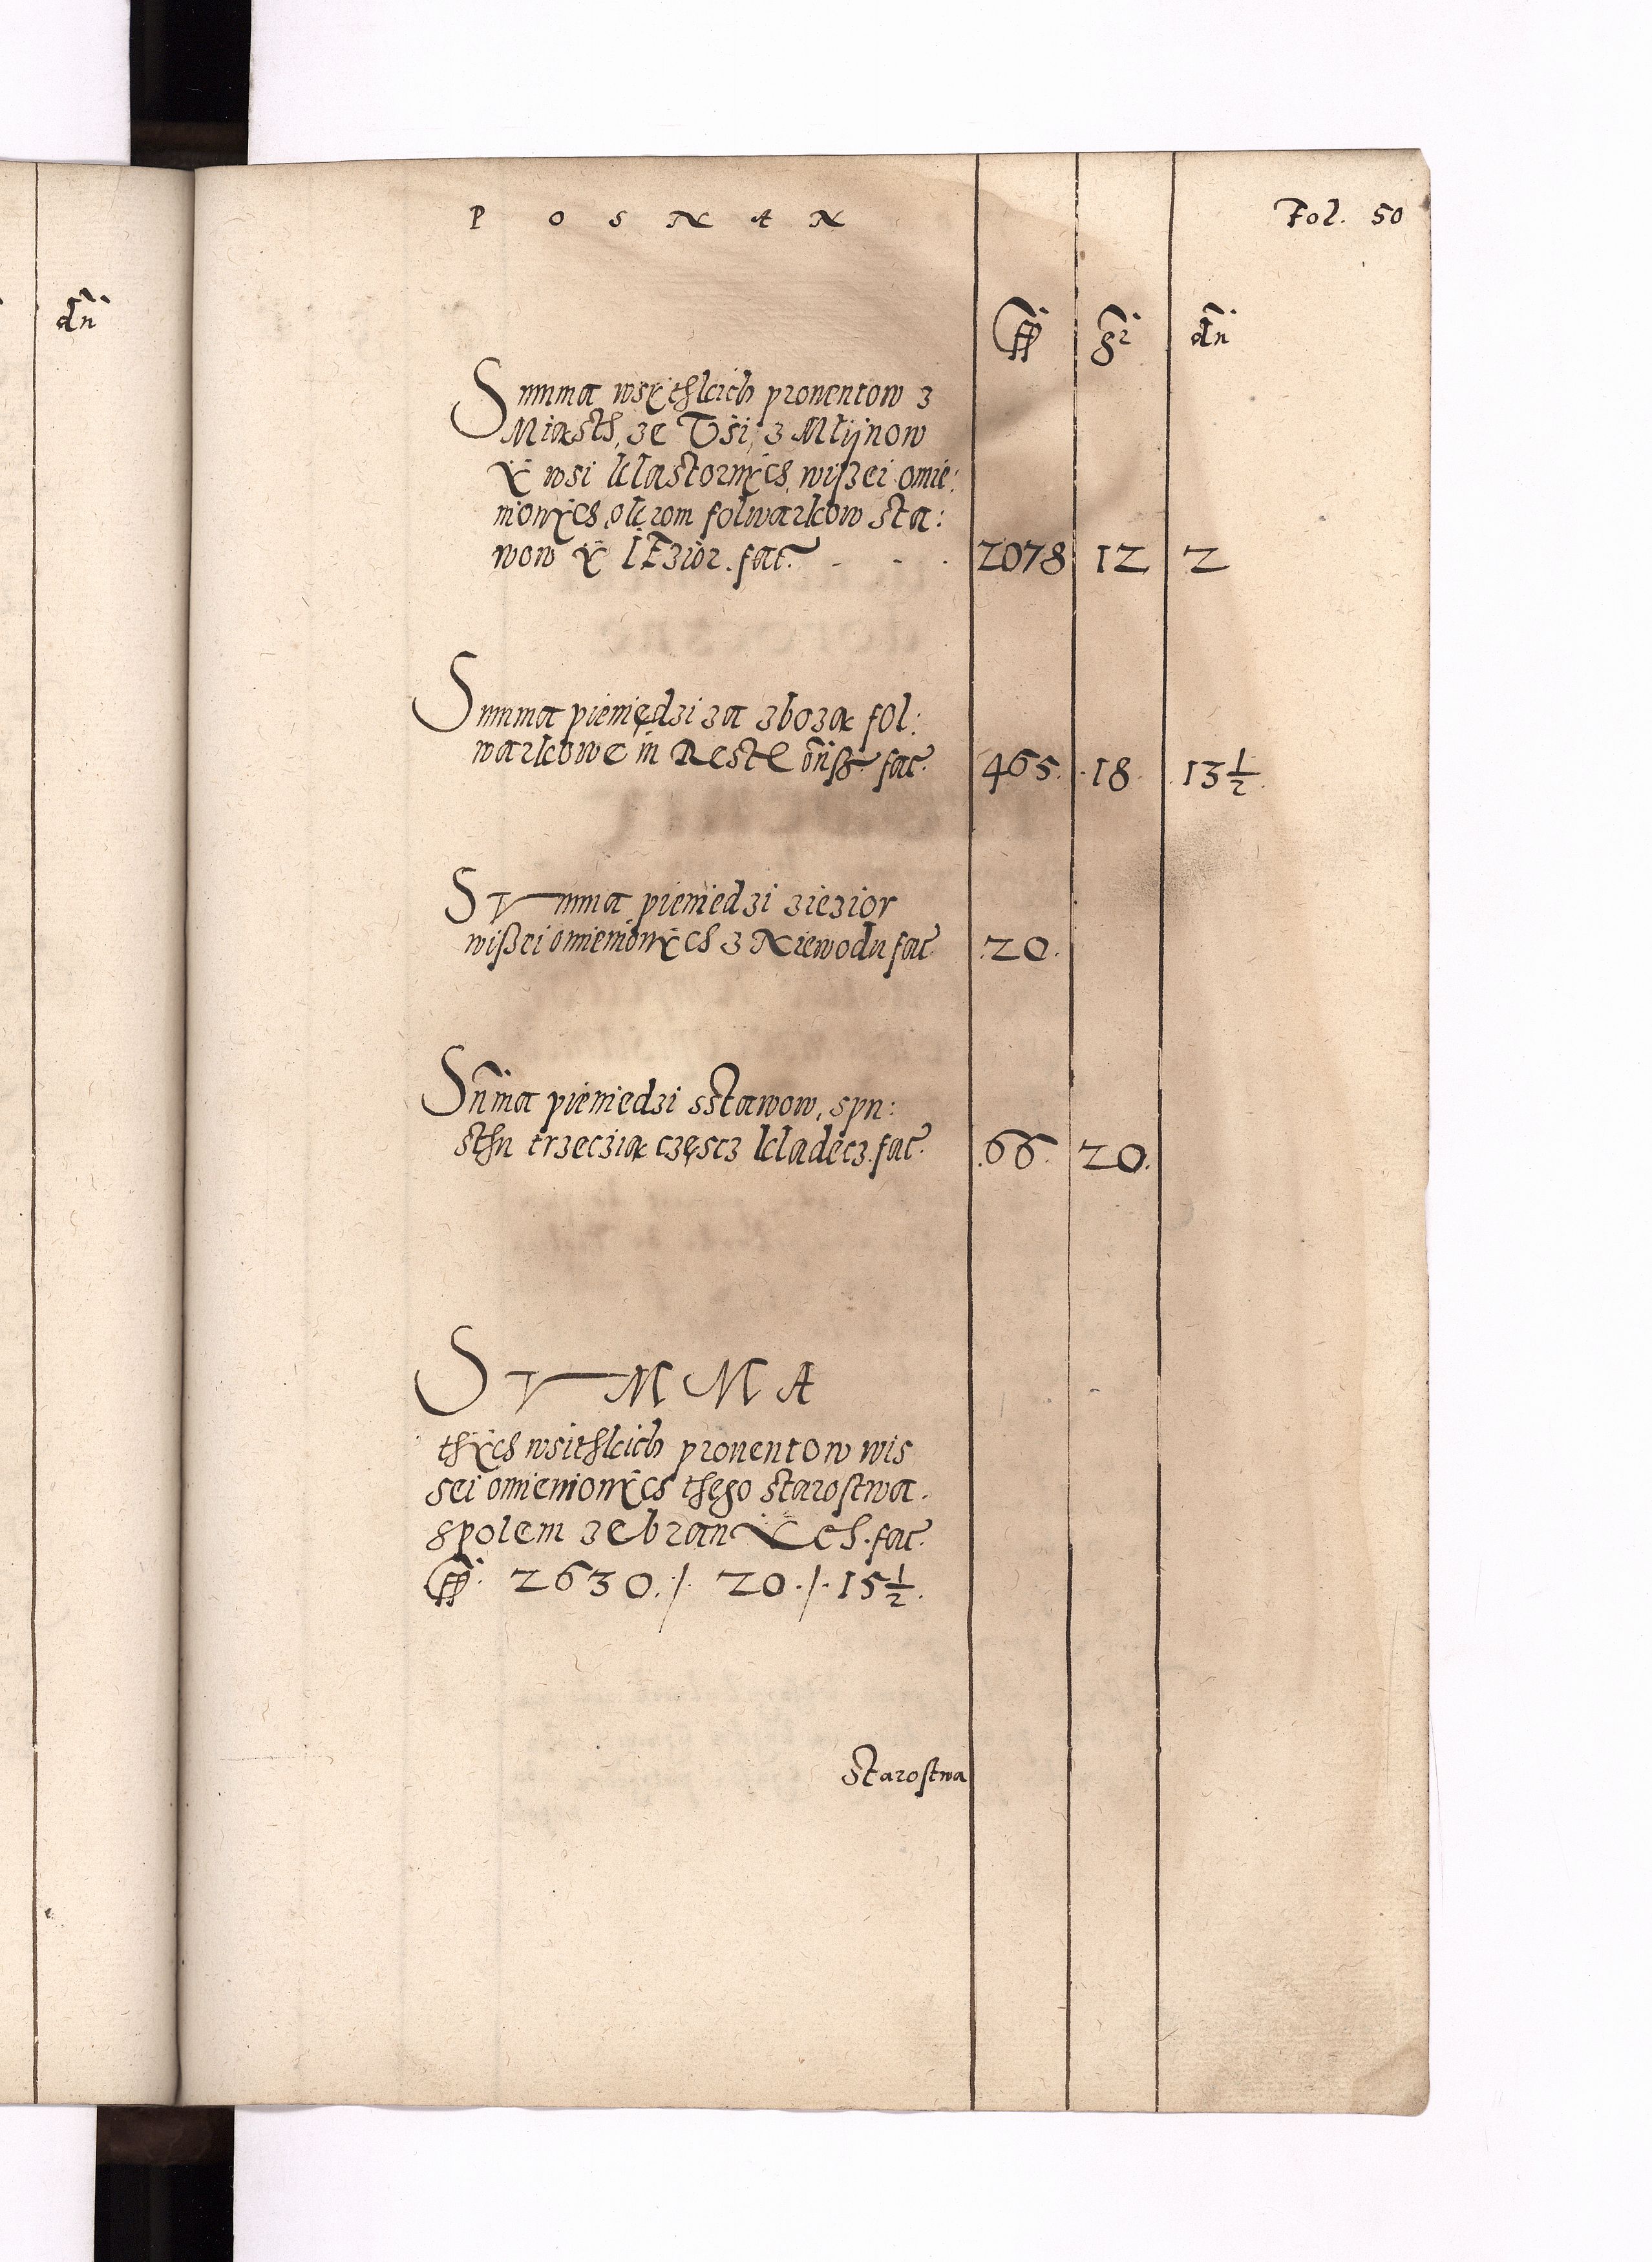 P O S N A N
Fol. 50
dn̄
ff gr dn̄
Summa wsÿthkich prouentow z
Miasth, ze Vsi, z Mlijnow
Ÿ wsi klastornÿch wiszei omie:
nionÿch, okrom folwarkow sta:
wow Ÿ IEzior. fac̄ - - - 2078 12 2
Summa pieniędzi za zboża fol:
warkowe in Restē fac̄ 465. 18. 13 1/2.
SVmma pieniedzi zieźior
wiszei omienionÿch z Niewodu fac̄ .20.
Sum̄a pieniedzi sstawow, spu:
sthu trzeczia częscz kladecz. fac̄ .66. 20.
SVMMA
thÿch wsithkich prouentow wis
sei omienionÿch thego starostwa.
spolem zebranÿch. fac̄
ff 2630./. 20./. 15 1/2.
Starostwa